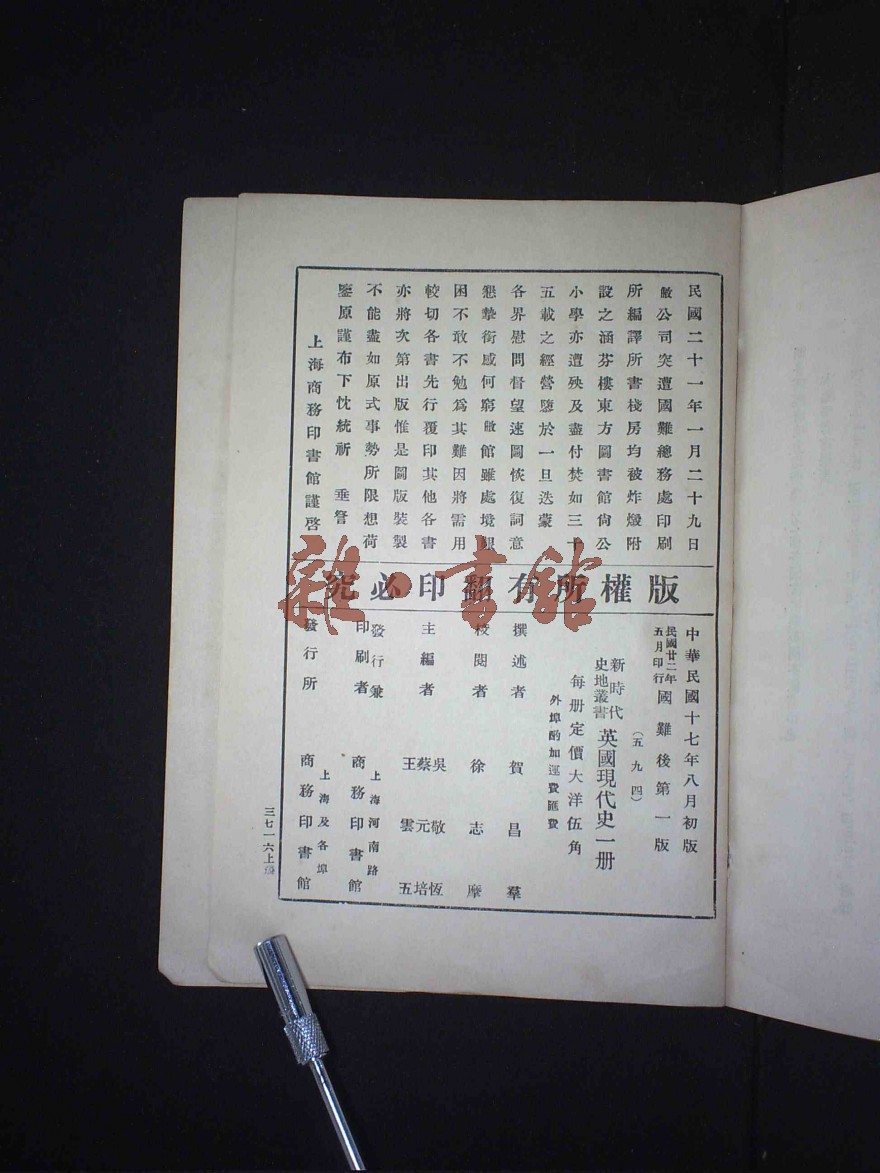 民國二十一年一月二十九日
敝公司突遭國難總務處印刷
所編譯所書棧房均被炸燬附
設之涵芬樓東方圖書館尙公
小學亦遭殃及盡付焚如三十
五載之經營墮於一旦迭蒙
各界慰問督望速圖恢復詞意
懇摯銜感何窮敝館雖處境艱
困不敢不勉爲其難因將需用
較切各書先行覆印其他各書
亦將次第出版惟是圖版裝製
不能盡如原式事勢所限想荷
鑒原謹布下忱統祈 垂詧
上海商務印書館謹啓
版權所有翻印必究
中華民國十七年八月初版
民國廿二年五月印行
國難後第一版
(五九四)
新時代史地叢書
英國現代史一册
每册定價大洋伍角
外埠酌加運費匯費
撰述者 賀昌羣
校閱者 徐志摩
主編者
吳敬恆
蔡元培
王雲五
發行兼印刷者
上海河南路
商務印書館
發行所
上海及各埠
商務印書館
三七一六上
雜·書館